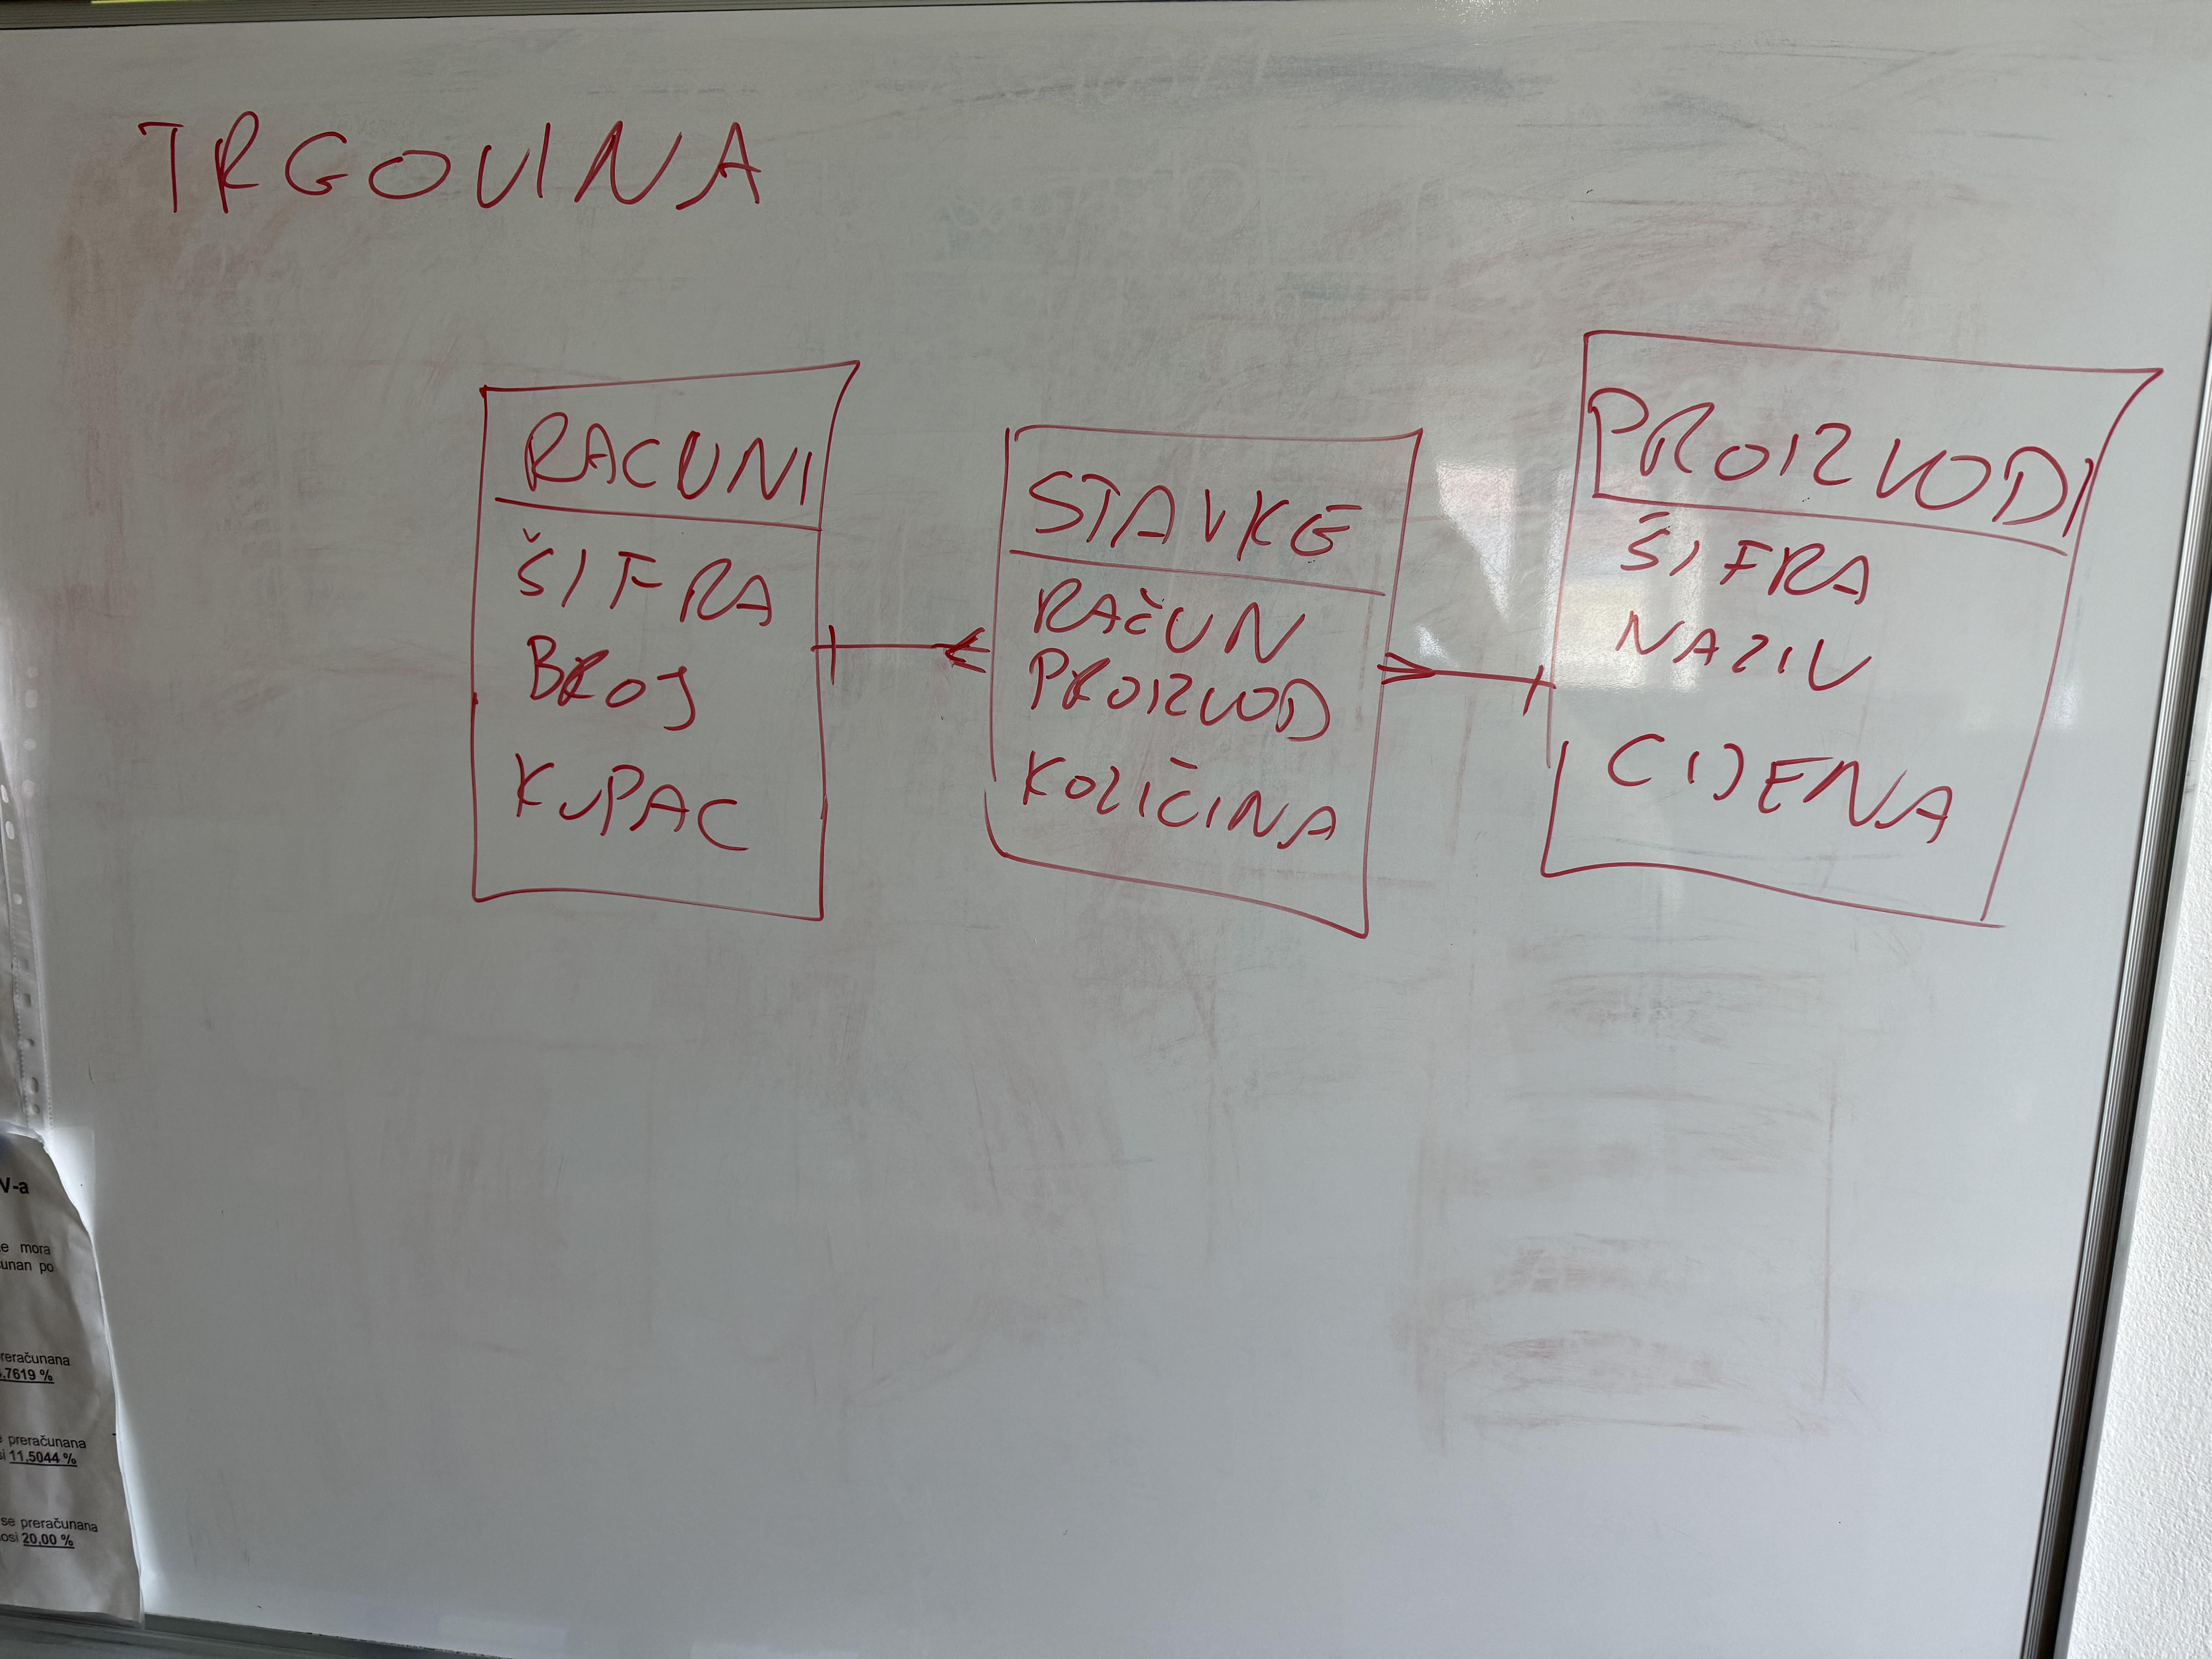 TRGOVINA
RACUNI
ŠIFRA
BROJ
KUPAC
STAVKE
RAČUN
PROIZVOD
KOLIČINA
PROIZVODI
ŠIFRA
NAZIV
CIJENA
V-a
e mora
unan po
reračunana
.7619 %
preračunana
si 11,5044 %
se preračunana
osi 20,00 %